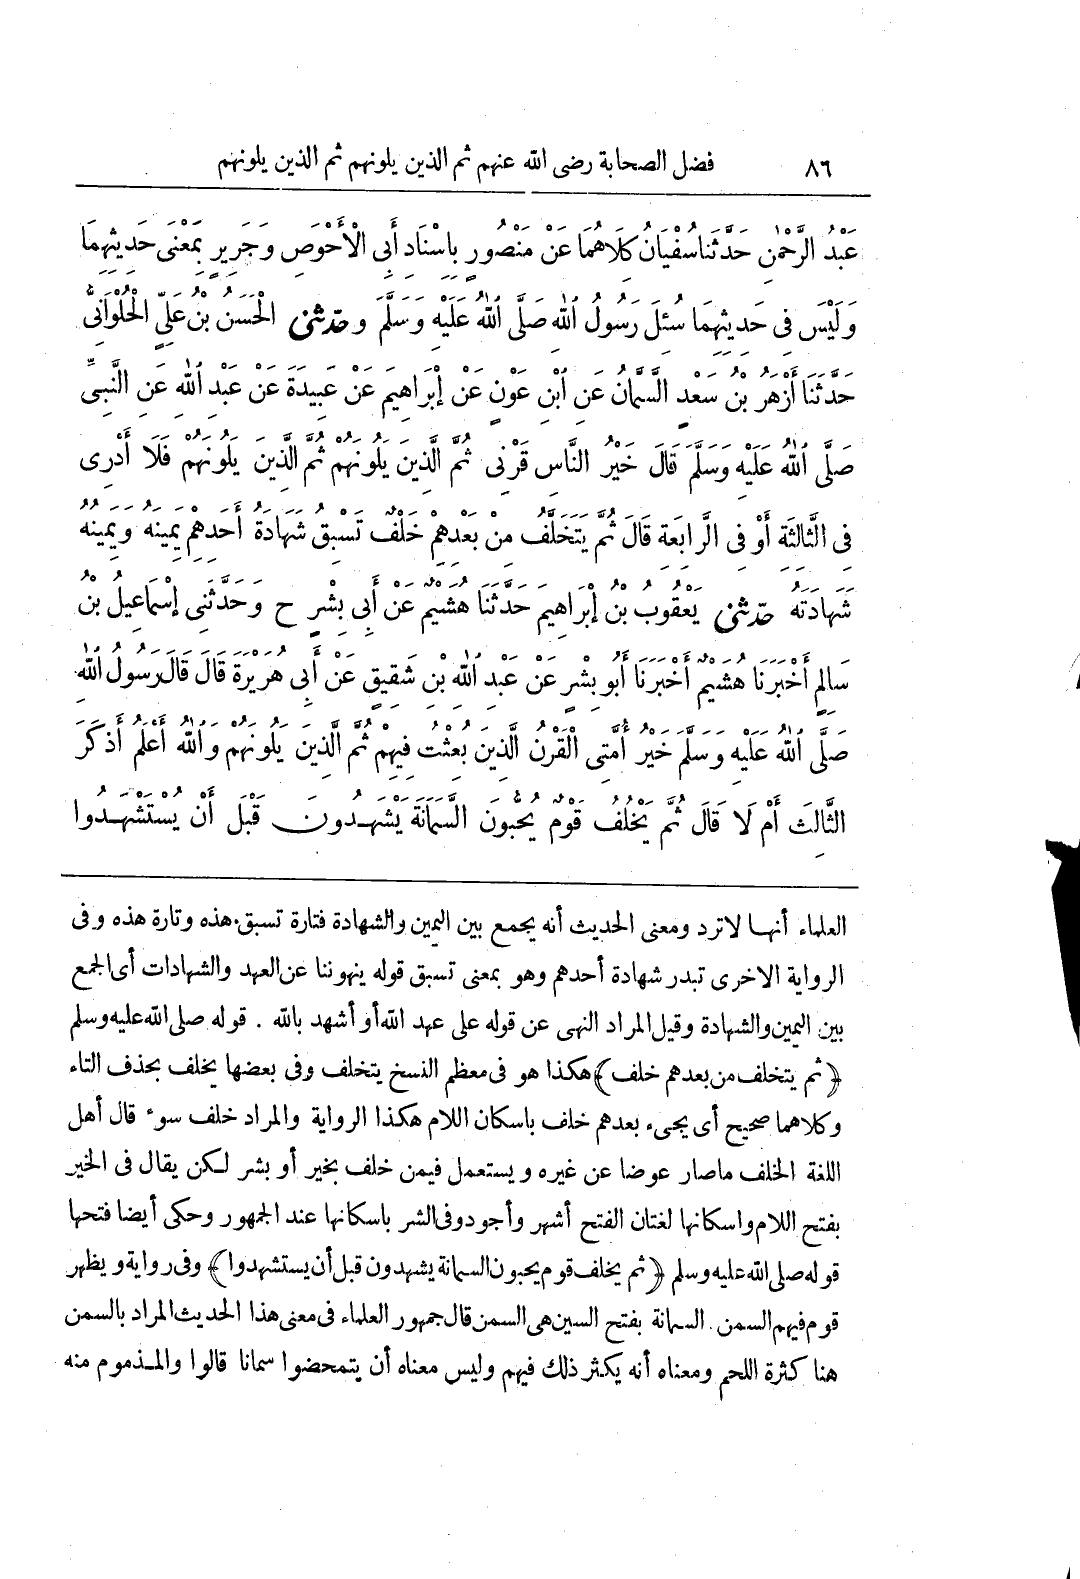 ٨٦ فضل الصحابة رضى الله عنهم ثم الذين يلونهم ثم الذين يلونهم
عَبْدُ الرَّحْمٰنِ حَدَّثَنَا سُفْيَانُ كِلَاهُمَا عَنْ مَنْصُورٍ بِإِسْنَادِ أَبِى الْأَحْوَصِ وَجَرِيرٍ بِمَعْنَى حَدِيثِهِمَا
وَلَيْسَ فِى حَدِيثِهِمَا سُئِلَ رَسُولُ اللهِ صَلَّى اللهُ عَلَيْهِ وَسَلَّمَ وحدّثنى الْحَسَنُ بْنُ عَلِىٍّ الْحُلْوَانِىُّ
حَدَّثَنَا أَزْهَرُ بْنُ سَعْدٍ السَّمَّانُ عَنِ ابْنِ عَوْنٍ عَنْ إِبْرَاهِيمَ عَنْ عَبِيدَةَ عَنْ عَبْدِ اللهِ عَنِ النَّبِىِّ
صَلَّى اللهُ عَلَيْهِ وَسَلَّمَ قَالَ خَيْرُ النَّاسِ قَرْنِى ثُمَّ الَّذِينَ يَلُونَهُمْ ثُمَّ الَّذِينَ يَلُونَهُمْ فَلَا أَدْرِى
فِى الثَّالِثَةِ أَوْ فِى الرَّابِعَةِ قَالَ ثُمَّ يَتَخَلَّفُ مِنْ بَعْدِهِمْ خَلْفٌ تَسْبِقُ شَهَادَةُ أَحَدِهِمْ يَمِينَهُ وَيَمِينُهُ
شَهَادَتَهُ حدّثنى يَعْقُوبُ بْنُ إِبْرَاهِيمَ حَدَّثَنَا هُشَيْمٌ عَنْ أَبِى بِشْرٍ ح وَحَدَّثَنِى إِسْمَاعِيلُ بْنُ
سَالِمٍ أَخْبَرَنَا هُشَيْمٌ أَخْبَرَنَا أَبُو بِشْرٍ عَنْ عَبْدِ اللهِ بْنِ شَقِيقٍ عَنْ أَبِى هُرَيْرَةَ قَالَ قَالَ رَسُولُ اللهِ
صَلَّى اللهُ عَلَيْهِ وَسَلَّمَ خَيْرُ أُمَّتِى الْقَرْنُ الَّذِينَ بُعِثْتُ فِيهِمْ ثُمَّ الَّذِينَ يَلُونَهُمْ وَاللهُ أَعْلَمُ أَذَكَرَ
الثَّالِثَ أَمْ لَا قَالَ ثُمَّ يَخْلُفُ قَوْمٌ يُحِبُّونَ السَّمَانَةَ يَشْهَدُونَ قَبْلَ أَنْ يُسْتَشْهَدُوا
العلماء أنها لاترد ومعنى الحديث أنه يجمع بين اليمين والشهادة فتارة تسبق هذه وتارة هذه وفى
الرواية الاخرى تبدر شهادة أحدهم وهو بمعنى تسبق قوله ينهوننا عن العهد والشهادات أى الجمع
بين اليمين والشهادة وقيل المراد النهى عن قوله على عهد الله أو أشهد بالله . قوله صلى الله عليه وسلم
﴿ثم يتخلف من بعدهم خلف﴾ هكذا هو فى معظم النسخ يتخلف وفى بعضها يخلف بحذف التاء
وكلاهما صحيح أى يجىء بعدهم خلف باسكان اللام هكذا الرواية والمراد خلف سوء قال أهل
اللغة الخلف ماصار عوضا عن غيره ويستعمل فيمن خلف بخير أو بشر لكن يقال فى الخير
بفتح اللام واسكانها لغتان الفتح أشهر وأجود وفى الشر باسكانها عند الجمهور وحكى أيضا فتحها
قوله صلى الله عليه وسلم ﴿ثم يخلف قوم يحبون السمانة يشهدون قبل أن يستشهدوا﴾ وفى رواية ويظهر
قوم فيهم السمن . السمانة بفتح السين هى السمن قال جمهور العلماء فى معنى هذا الحديث المراد بالسمن
هنا كثرة اللحم ومعناه أنه يكثر ذلك فيهم وليس معناه أن يتمحضوا سمانا قالوا والمذموم منه